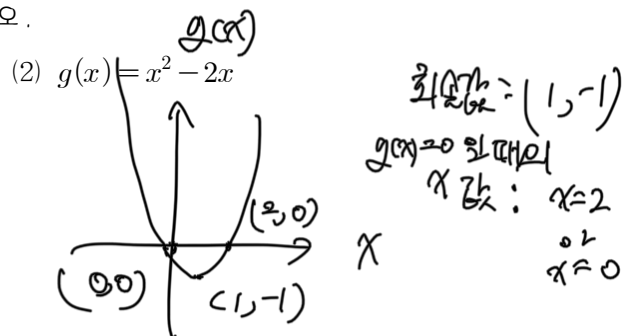 오.
g(x)
(2) g(x) = x² - 2x
최솟값 : (1, -1)
g(x)=0 일 때의
x 값 : x=2
or
x=0
(2, 0)
x
(0,0)
(1, -1)